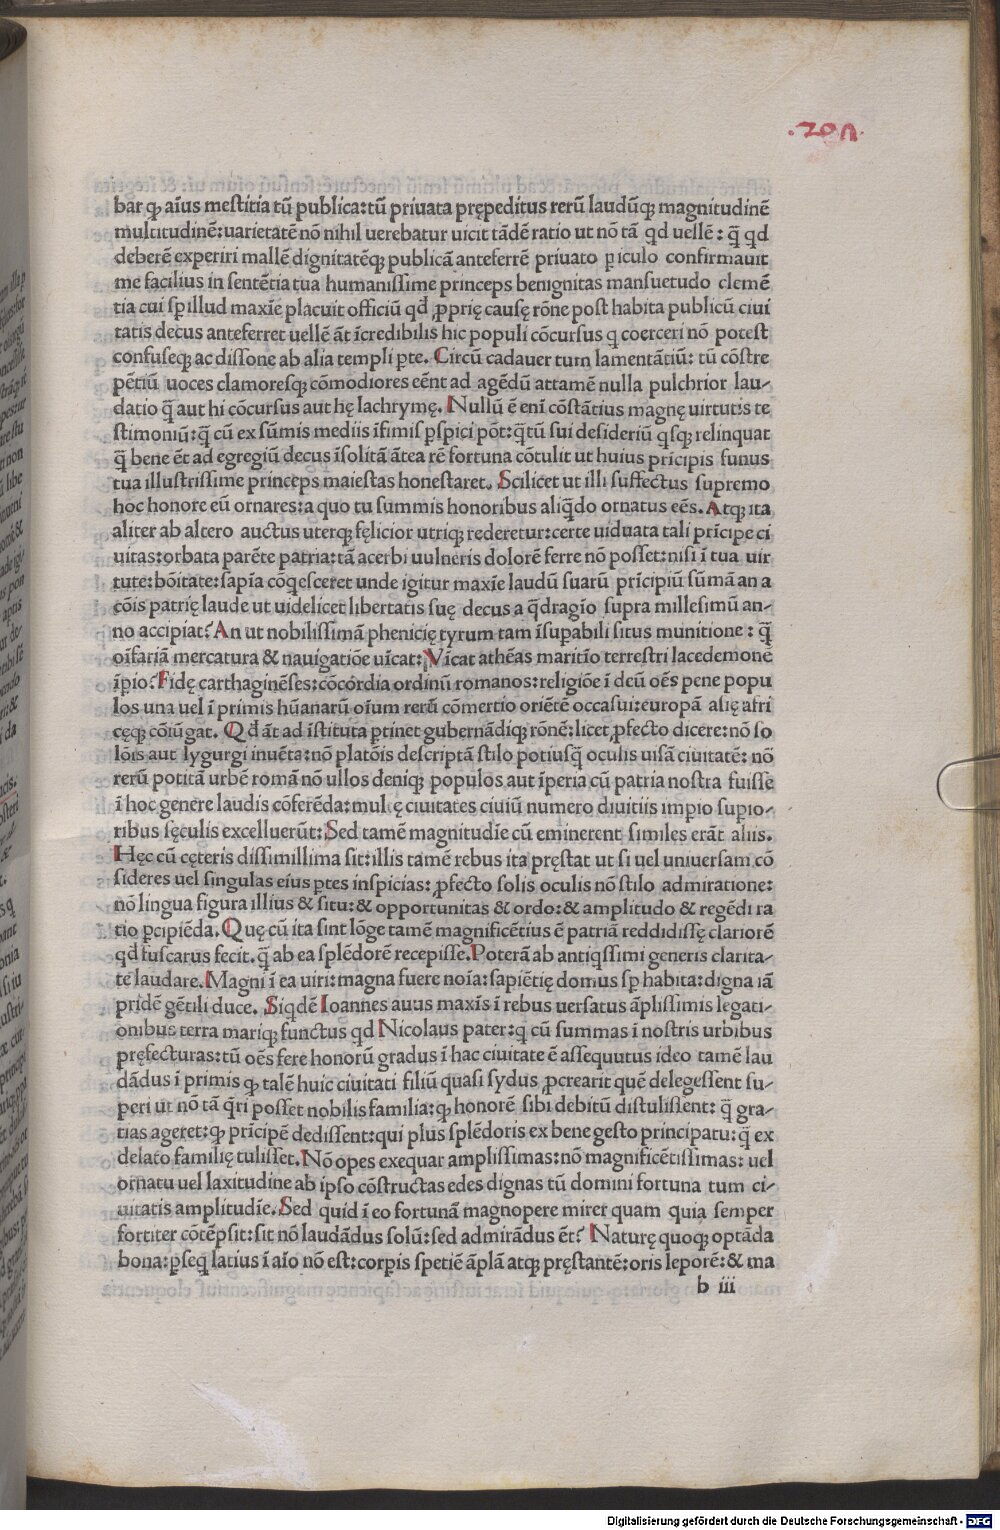 bar ꝙ aīus mestitia tū publica: tū priuata prępeditus rerū laudūqꝫ magnitudinē
multitudinē: uarietatē nō nihil uerebatur uicit tādē ratio ut nō tā qd uellē: q̄ qd
deberē experiri mallē dignitatēqꝫ publicā anteferrē priuato ꝑiculo confirmauit
me facilius in sentētia tua humanissime princeps benignitas mansuetudo clemē
tia cui sp illud maxīe placuit officiū qd ꝓprię causę rōne post habita publicū ciui
tatis decus anteferret uellē āt īcredibilis hic populi cōcursus q coerceri nō potest
confuseqꝫ ac dissone ab alia templi ꝑte. Circū cadauer tum lamentātiū: tū cōstre
pētiū uoces clamoresqꝫ cōmodiores eēnt ad agēdū attamē nulla pulchrior lau-
datio q̄ aut hi cōcursus aut hę lachrymę. Nullū ē enī cōstātius magnę uirtutis te
stimoniū: q̄ cū ex sūmis mediis īfimis ꝑspici pōt: q̄tū sui desideriū qsqꝫ relinquat
q̄ bene ēt ad egregiū decus īsolitā ātea rē fortuna cōtulit ut huius prīcipis funus
tua illustrissime princeps maiestas honestaret. Scilicet ut illi suffectus supremo
hoc honore eū ornares: a quo tu summis honoribus aliq̄do ornatus eēs. Atqꝫ ita
aliter ab altero auctus uterqꝫ fęlicior utriqꝫ rederetur: certe uiduata tali prīcipe ci
uitas: orbata parēte patria: tā acerbi uulneris dolorē ferre nō posset: nisi ī tua uir
tute: bōitate: sapīa cōqesceret unde igitur maxīe laudū suarū prīcipiū sūmā an a
cōis patrię laude ut uidelicet libertatis suę decus a q̄dragīo supra millesimū an-
no accipiat? An ut nobilissimā phenicię tyrum tam īsupabili situs munitione: q̄
oīfariā mercatura & nauigatiōe uīcat: Vīcat athēas maritīo terrestri lacedemonē
īpio? Fidę carthaginēses: cōcordia ordinū romanos: religiōe ī deū oēs pene popu
los una uel ī primis hūanarū oīum rerū cōmertio oriētē occasui: europā alię afri
cęqꝫ cōiūgat. Qd āt ad īstituta ptinet gubernādiqꝫ rōnē: licet ꝓfecto dicere: nō so
lōis aut lygurgi inuēta: nō platōis descriptā stilo potiusq̄ oculis uisā ciuitatē: nō
rerū potitā urbē romā nō ullos deniqꝫ populos aut īperia cū patria nostra fuisse
ī hoc genere laudis cōferēda: mulę ciuitates ciuiū numero diuitiis impio supio-
ribus sęculis excelluerūt: Sed tamē magnitudīe cū eminerent similes erāt aliis.
Hęc cū cęteris dissimillima sit: illis tamē rebus ita pręstat ut si uel uniuersam cō
sideres uel singulas eius ꝑtes inspicias: ꝓfecto solis oculis nō stilo admiratione:
nō lingua figura illius & situ: & opportunitas & ordo: & amplitudo & regēdi ra
tio ꝑcipiēda. Quę cū ita sint lōge tamē magnificētius ē patriā reddidissę clariorē
qd fuscarus fecit. q̄ ab ea splēdorē recepisse. Poterā ab antiqssimi generis clarita-
te laudare. Magni ī ea uiri: magna fuere noīa: sapiētię domus sp habita: digna iā
pridē gētili duce. Siqdē Ioannes auus maxīs ī rebus uersatus āplissimis legati-
onibus terra mariqꝫ functus qd Nicolaus pater: q cū summas ī nostris urbibus
pręfecturas: tū oēs fere honorū gradus ī hac ciuitate ē assequutus ideo tamē lau
dādus ī primis ꝙ talē huic ciuitati filiū quasi sydus ꝓcrearit quē delegessent su-
peri ut nō tā q̄ri posset nobilis familia: ꝙ honorē sibi debitū distulissent: q̄ gra-
tias ageret: ꝙ prīcipē dedissent: qui plus splēdoris ex bene gesto principatu: q̄ ex
delato familię tulisset. Nō opes exequar amplissimas: nō magnificētissimas: uel
ornatu uel laxitudine ab ipso cōstructas edes dignas tū domini fortuna tum ci-
uitatis amplitudīe. Sed quid ī eo fortunā magnopere miret quam quia semper
fortiter cōtēpsit: sit nō laudādus solū: sed admirādus ēt? Naturę quoqꝫ optāda
bona: ꝑseq latius ī aīo nō est: corpis spetiē āplā atqꝫ pręstantē: oris leporē: & ma
b iii
Digitalisierung gefördert durch die Deutsche Forschungsgemeinschaft - DFG